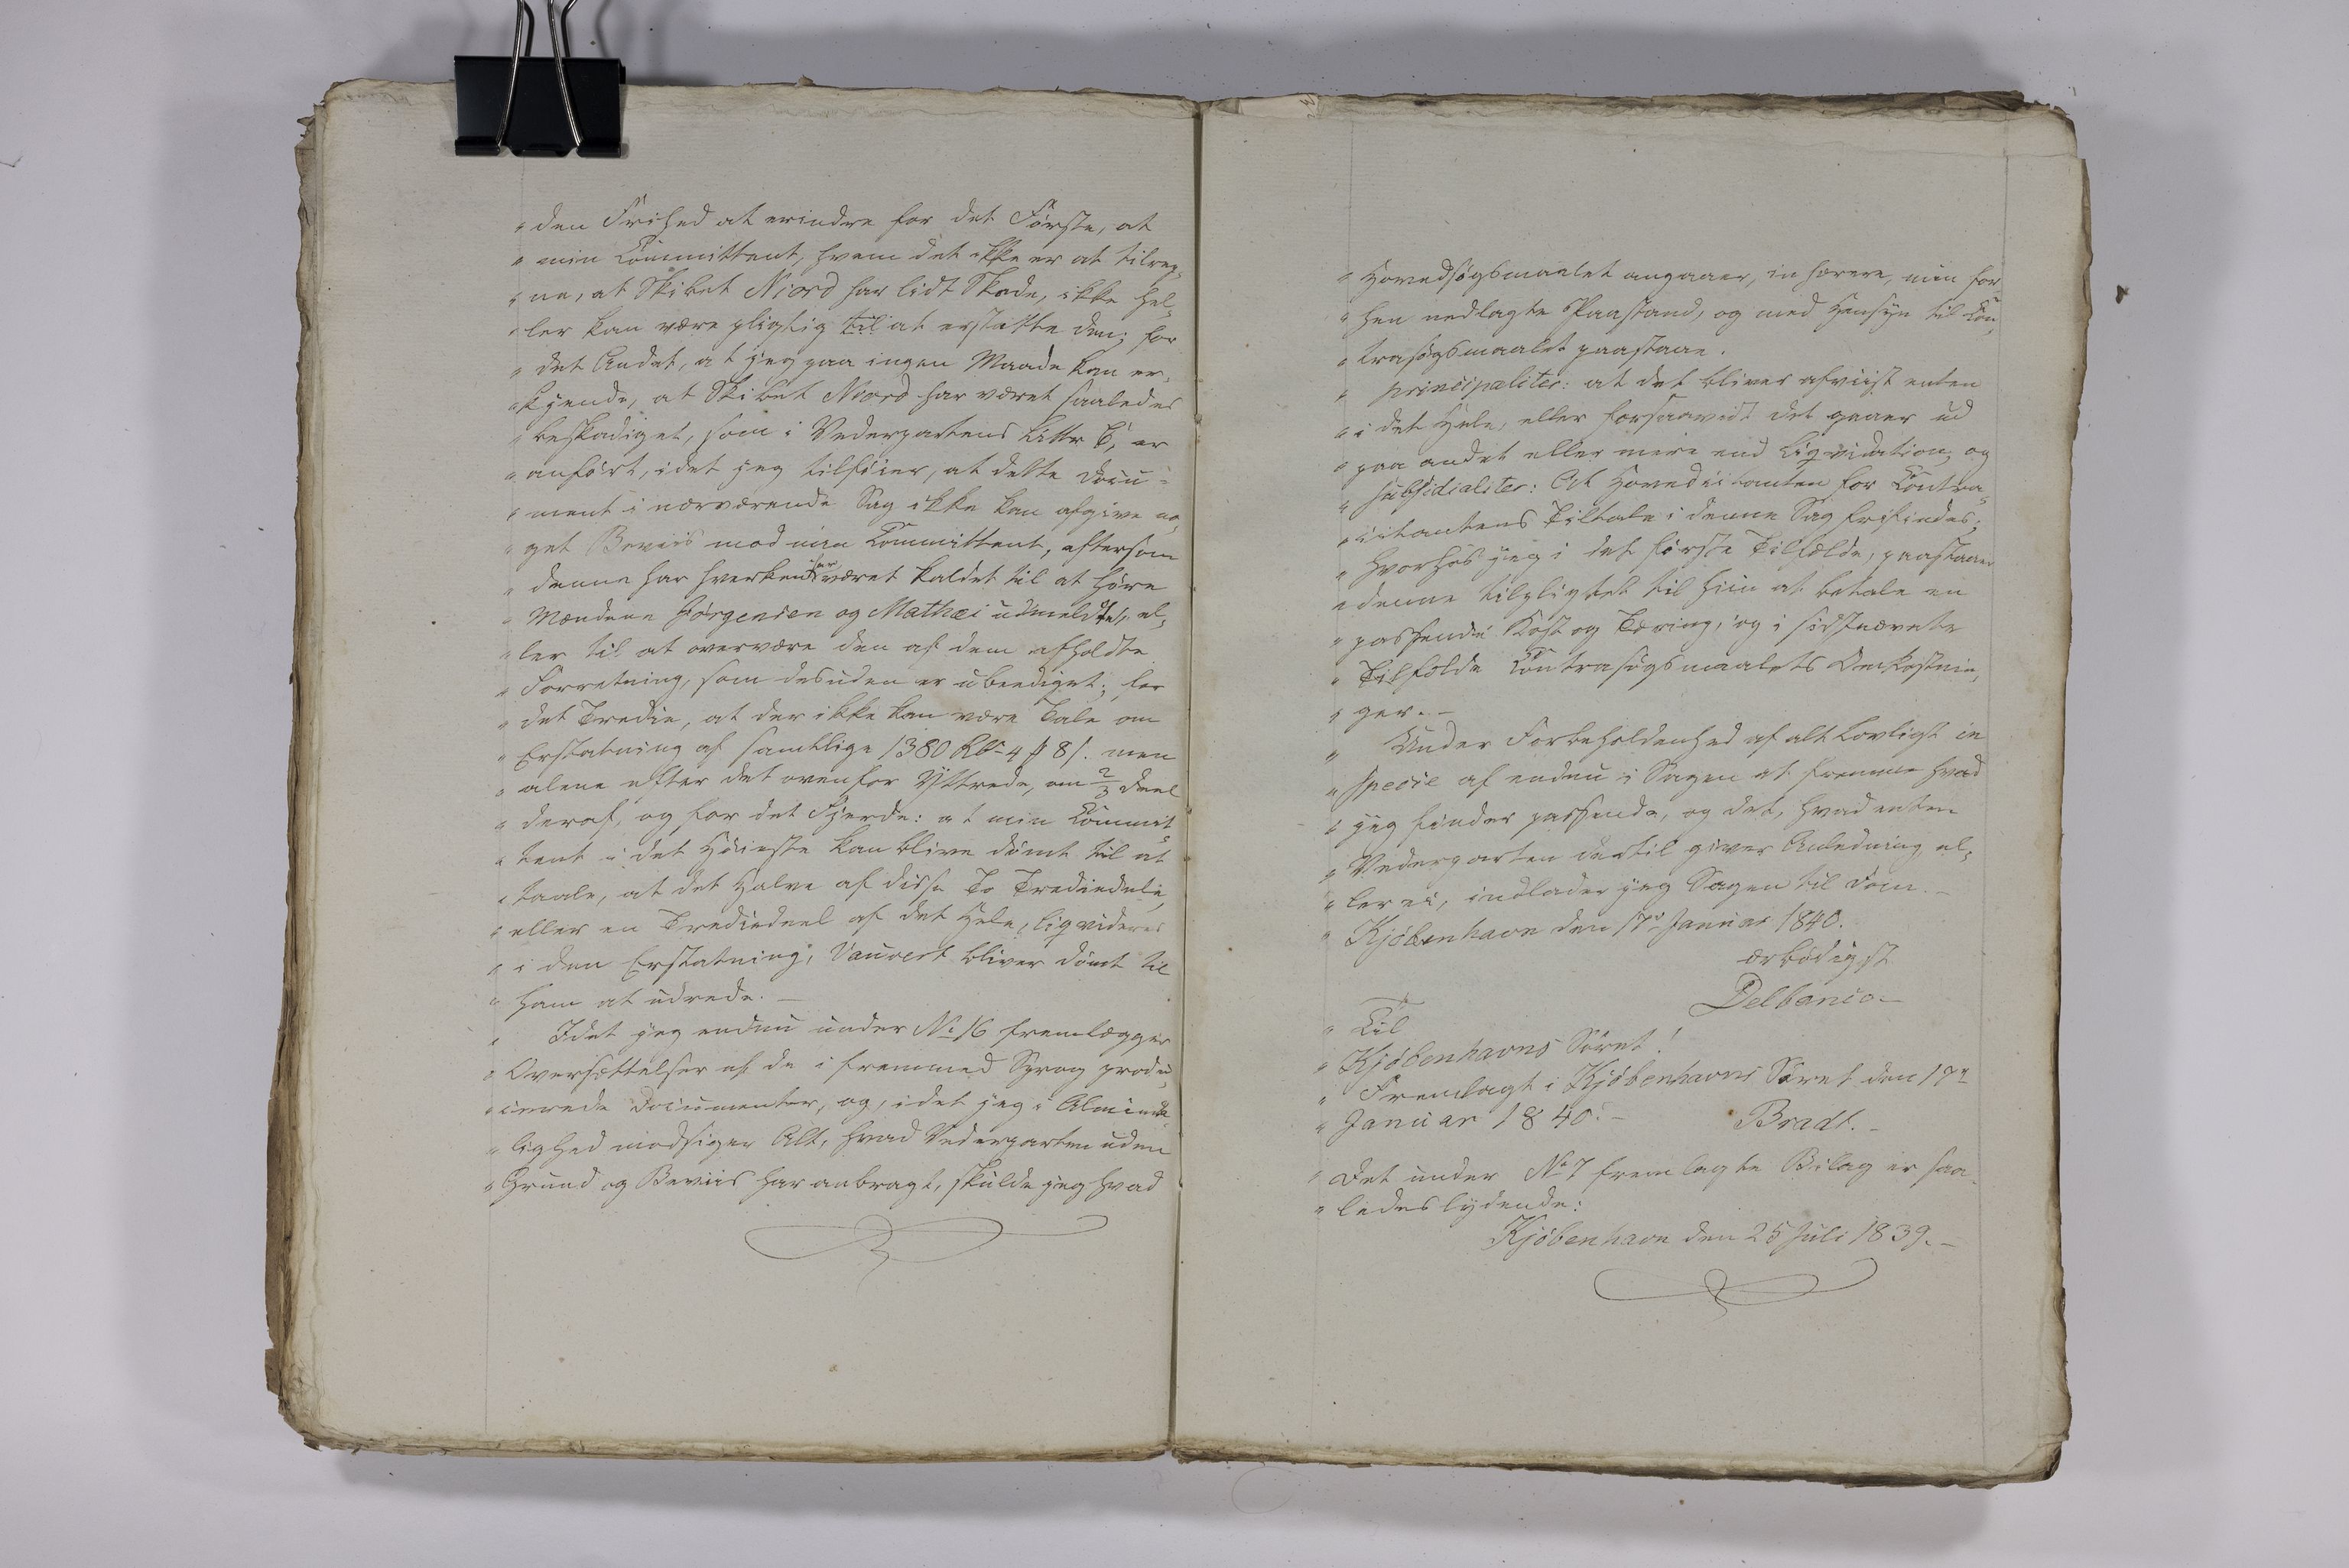 "den Frihed at erindre for det Første, at
"min Committent, hvem det ikke er at tilreg-
"ne, at Skibet Niord har lidt Skade, ikke hel-
"ler kan være pligtig til at erstatte den; for
"det Andet, at jeg paa ingen Maade kan er-
"kjende, at Skibet Niord har været saaledes
"beskadiget, som i Vederpartens Littr B, er
"anført, idet jeg tilføier, at dette Docu-
"ment i nærværende Sag ikke kan afgive no-
"get Beviis mod min Committent, eftersom
"denne har hverken været kaldet til at høre
"Mændene Jörgensen og Mathæi udmeldte, el-
"ler til at overvære den af dem afholdte
"Forretning, som desuden er ubeediget; for
"det Tredie, at der ikke kan være Tale om
"Erstatning af samtlige 1380 Rbd 4 ß 8 s. men
"alene efter det ovenfor Yttrede, om 2/3 Deel
"deraf, og for det Fjerde: at min Commit-
"tent i det Høieste kan blive dømt til at
"taale, at det Halve af disse To Trediedele,
"eller en Trediedeel af det Hele, liqvideres
"i den Erstatning, Vauvert bliver dømt til
"ham at udrede. —
"Idet jeg endnu under No 16 fremlægger
"Oversættelser af de i fremmed Sprog produ-
"cerede Documenter, og, idet jeg i Alminde-
"lighed modsiger Alt, hvad Vederparten uden
"Grund og Beviis har anbragt, skulde jeg hvad
"Hovedsøgsmaalet angaaer, inhærere, min for-
"hen nedlagte Paastand, og med Hensyn til Con-
"trasøgsmaalet paastaae.
"principaliter: at det bliver afviist enten
"i det Hele, eller forsaavidt det gaaer ud
"paa andet eller mere end Liqvidation, og
"subsidialiter: At Hovedcitanten for Contra-
"citantens Tiltale i denne Sag frifindes;
"hvorhos jeg i det første Tilfælde, paastaaer
"denne tilpligtet til hiin at betale en
"passende Kost og Tæring, og i sidstnævnte
"Tilfælde Contrasøgsmaalets Omkostnin-
"ger. —
"Under Forbeholdenhed af alt Lovligt in
"specie af endnu i Sagen at fremme hvad
"jeg finder passende, og det, hvad enten
"Vederparten dertil giver Anledning el-
"ler ei, indlader jeg Sagen til Dom. —
"Kjöbenhavn den 17de Januar 1840.
ærbødigst
Delbanco. —
"Til
"Kjöbenhavns Söret!
"Fremlagt i Kjöbenhavns Söret den 17de
"Januar 1840. — Bradt. —
"Det under No 7 fremlagte Bilag er saa-
"ledes lydende:
Kjöbenhavn den 25 Juli 1839. —